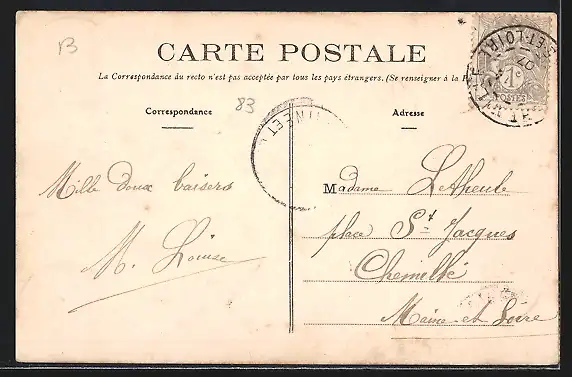 B
CARTE POSTALE
La Correspondance du recto n'est pas acceptée par tous les pays étrangers. (Se renseigner à la
Correspondance
83
Adresse
1c
POSTES
ET-LOIR
07
Mille doux baisers
M. Louise
Madame LeTheule
place St Jacques
Chemillé
Maine et Loire